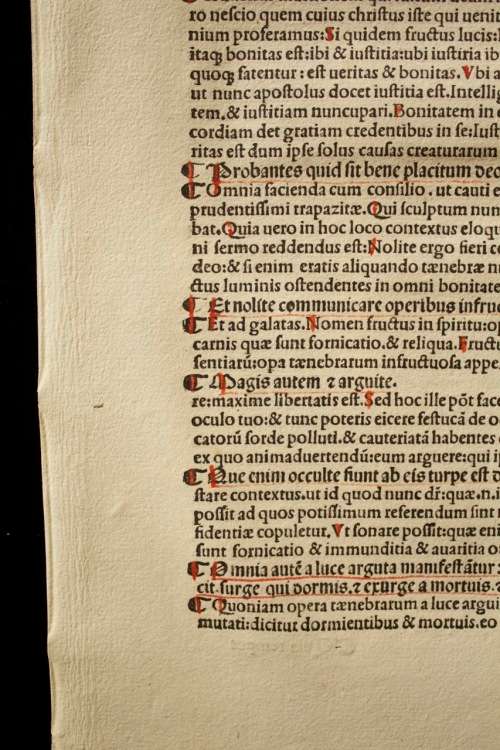 ro nescio quem cuius christus iste qui uenit
nium proferamus: Si quidem fructus lucis:
itaq; bonitas est:ibi & iustitia:ubi iustiria ib
quoq; fatentur: est ueritas & bonitas. Vbi a
ut nunc apostolus docet iustitia est. Intellig
tem.& iustitiam nuncupari. Bonitatem in
cordiam det gratiam credentibus in se: Iust
ritas est dum ipse solus causas creaturarum
¶ Probantes quid sit bene placitum deo
¶ Omnia facienda cum consilio. ut cauti e
prudentissimi trapazitæ. Qui sculptum num
bat. Quia uero in hoc loco contextus eloq
ni sermo reddendus est: Nolite ergo fieri c
deo:& si enim eratis aliquando tænebræ n
ctus luminis ostendentes in omni bonitate
¶ Et nolite communicare operibus infru
¶ Et ad galatas. Nomen fructus in spiritu:op
carnis quæ sunt fornicatio.& reliqua. Fructu
sentiarū:opa tænebrarum infructuosa appe
¶ Magis autem ⁊ arguite.
re:maxime libertatis est. Sed hoc ille pōt face
oculo tuo:& tunc poteris eicere festucā de o
catorū sorde polluti.& cauteriatā habentes
ex quo animaduertendū:eum arguere:qui ip
¶ Que enim occulte fiunt ab eis turpe est d
stare contextus.ut id quod nunc dr̄:quæ.n.i
possit ad quos potissimum referendum sint
fidentiæ copuletur. Vt sonare possit:quæ eni
sunt fornicatio & immunditia & auaritia
¶ Omnia autē a luce arguta manifestātur:
cit. surge qui dormis.⁊ exurge a mortuis.⁊
¶ Quoniam opera tænebrarum a luce argui
mutati:dicitur dormientibus & mortuis.eo